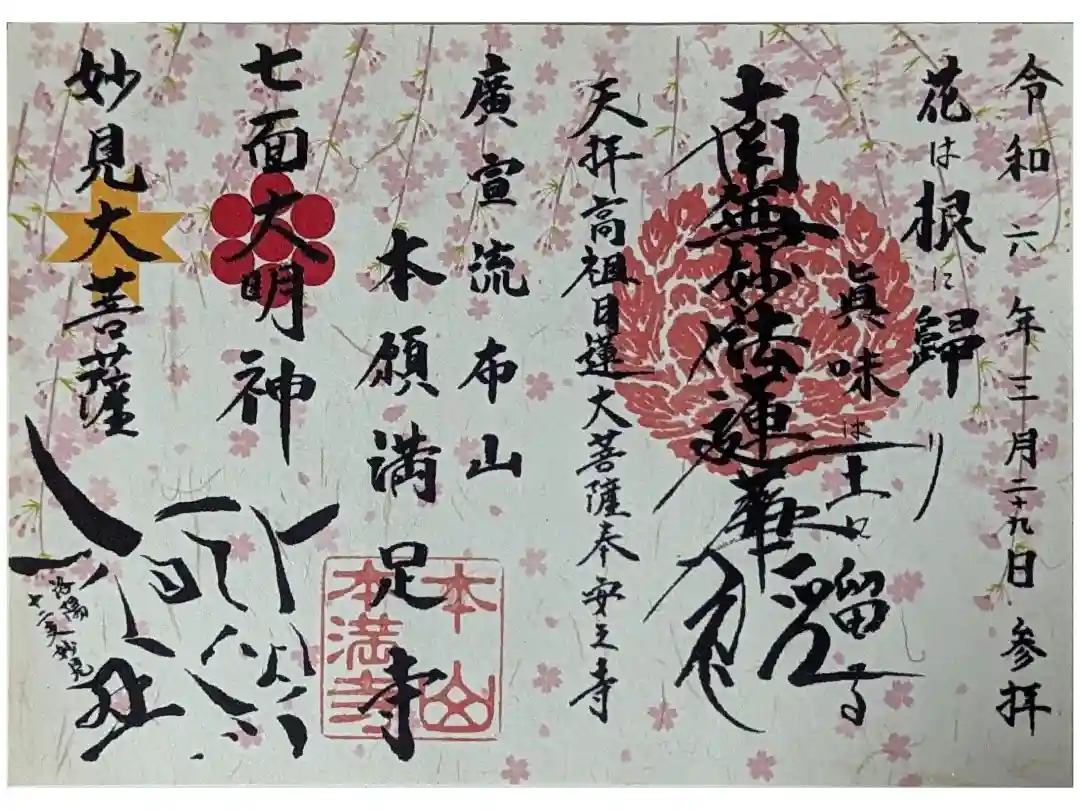 令和六年三月二十九日 参拝
花は根に歸り
眞味は土に留まる
南無妙法蓮華経
天拝高祖日蓮大菩薩奉安之寺
廣宣流布山
本願満足寺
本山
本満寺
七面大明神
妙見大菩薩
洛陽
十二支妙見